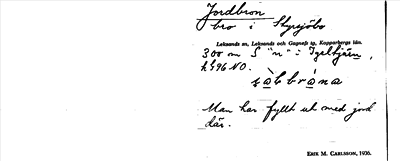 Jordbron
bro i Styrsjöbo
Leksands sn, Leksands och Gagnefs tg, Kopparbergs län.
300 m S "n" i Igeltjärn,
h 596 NO.
Man har fyllt ut med jord
där.
ERIK M. CARLSSON, 1936.